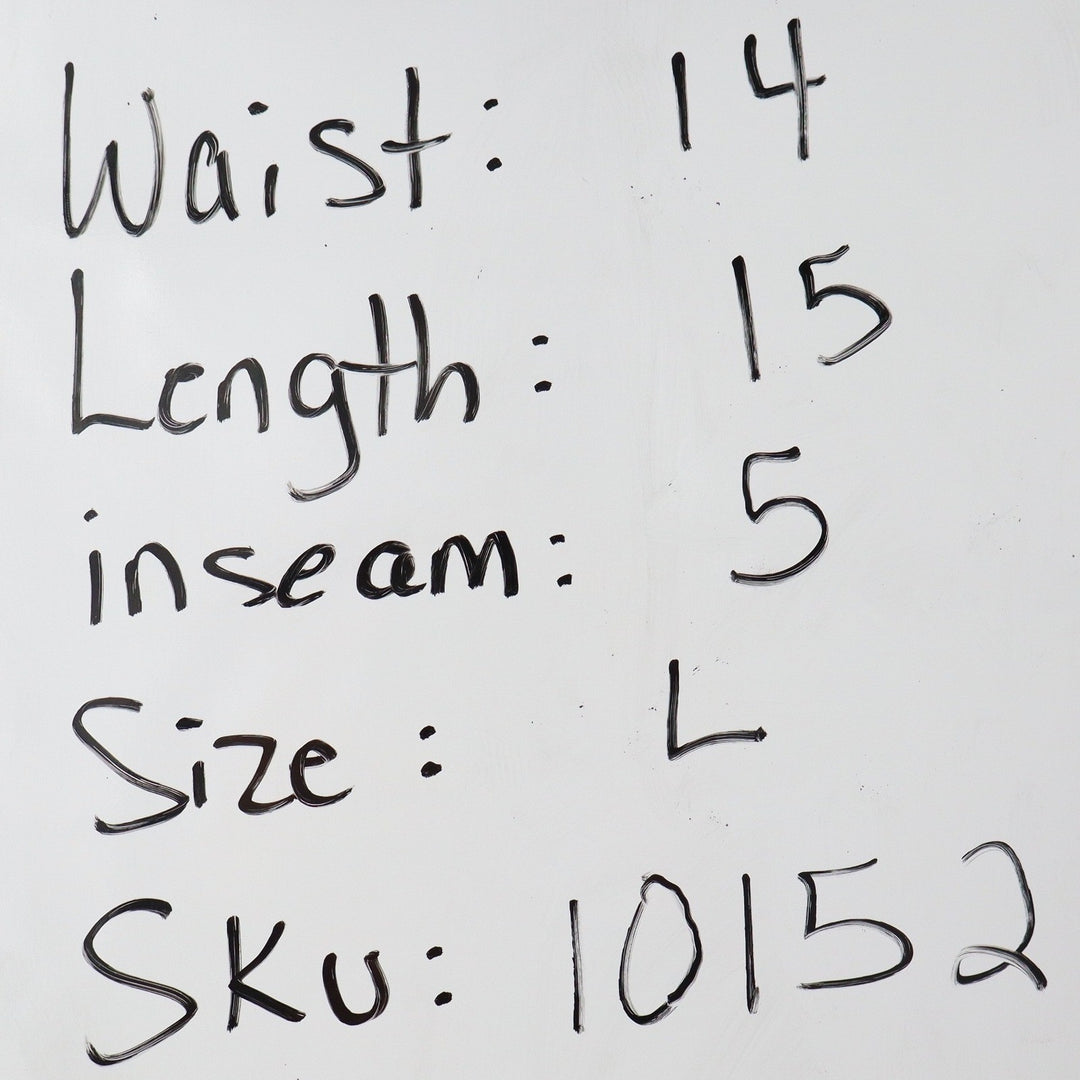 Waist: 14
Length: 15
inseam: 5
Size: L
SKu: 10152